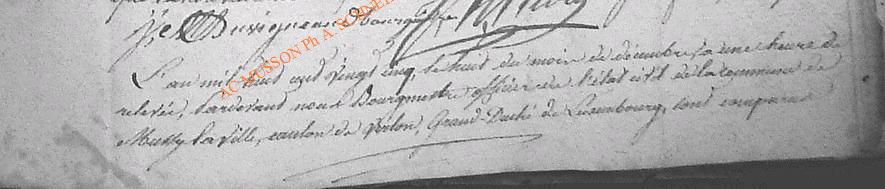 Duvigneau Bourgmestre
AC MUSSON Ph A. SOB
L'an mil huit cent vingt cinq, le huit du mois de décembre à une heure de
relevée, pardevant nous Bourgmestre officier de l'état civil de la commune de
Mussy la ville, canton de Virton, Grand-Duché de Luxembourg, sont comparus